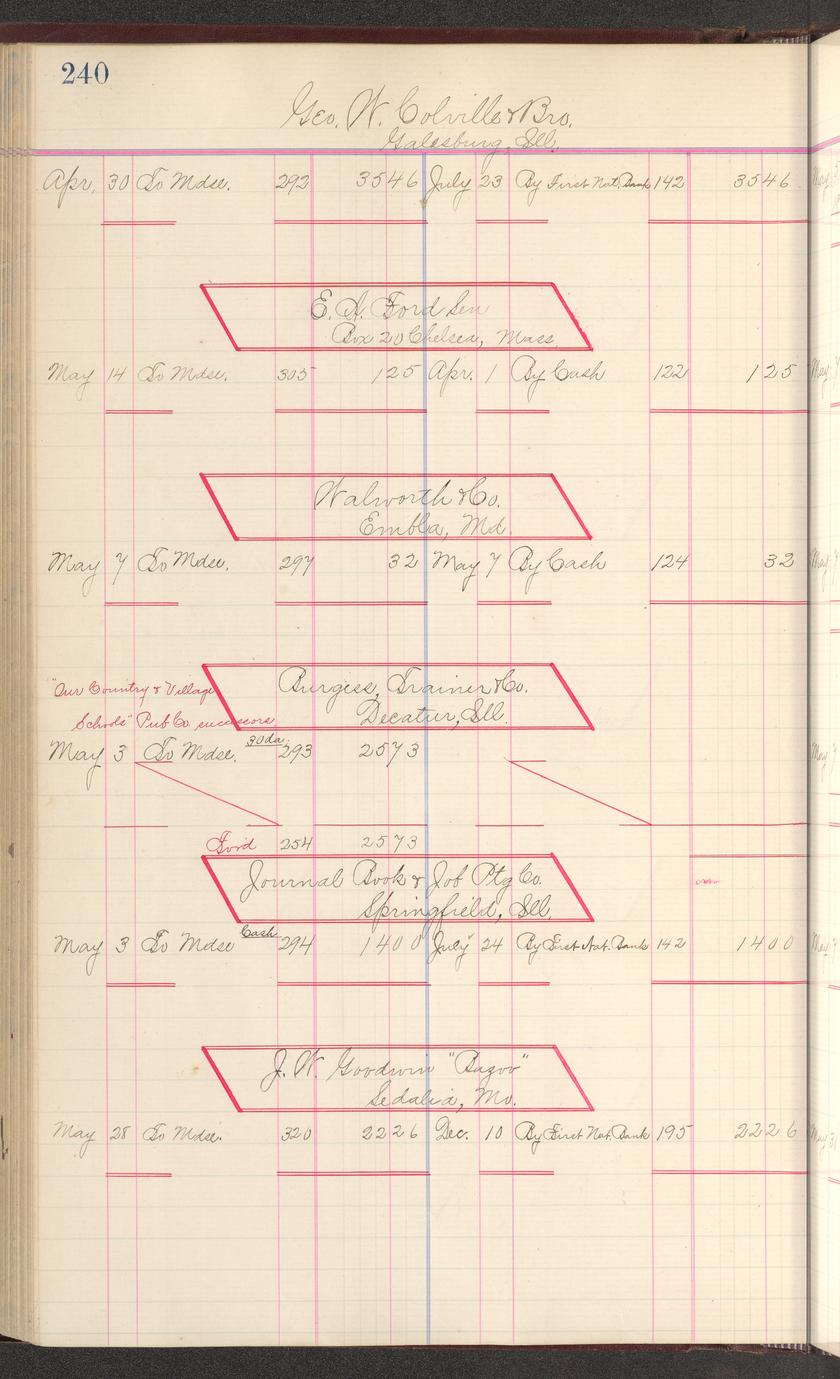 240
Geo. W. Colville & Bro.
Galesburg, Ill.
Apr. 30 To Mdse. 292 3546 July 23 By First Nat. Bank 142 3546
E. A. Ford Sen
Box 20 Chelsea, Mass.
May 14 To Mdse. 305 125 Apr. 1 By Cash 122 125
Walworth & Co.
Embla, Md.
May 7 To Mdse. 297 32 May 7 By Cash 124 32
"Our Country & Village
Schools" Pub Co. successors
Burgess, Trainer & Co.
Decatur, Ill.
May 3 To Mdse. 30da. 293 2573
Ford 254 2573
Journal Book & Job Ptg Co.
Springfield, Ill.
May 3 To Mdse Cash 294 1400 July 24 By First Nat. Bank 142 1400
J. W. Goodwin "Bazoo"
Sedalia, Mo.
May 28 To Mdse. 320 2226 Dec. 10 By First Nat. Bank 195 2226